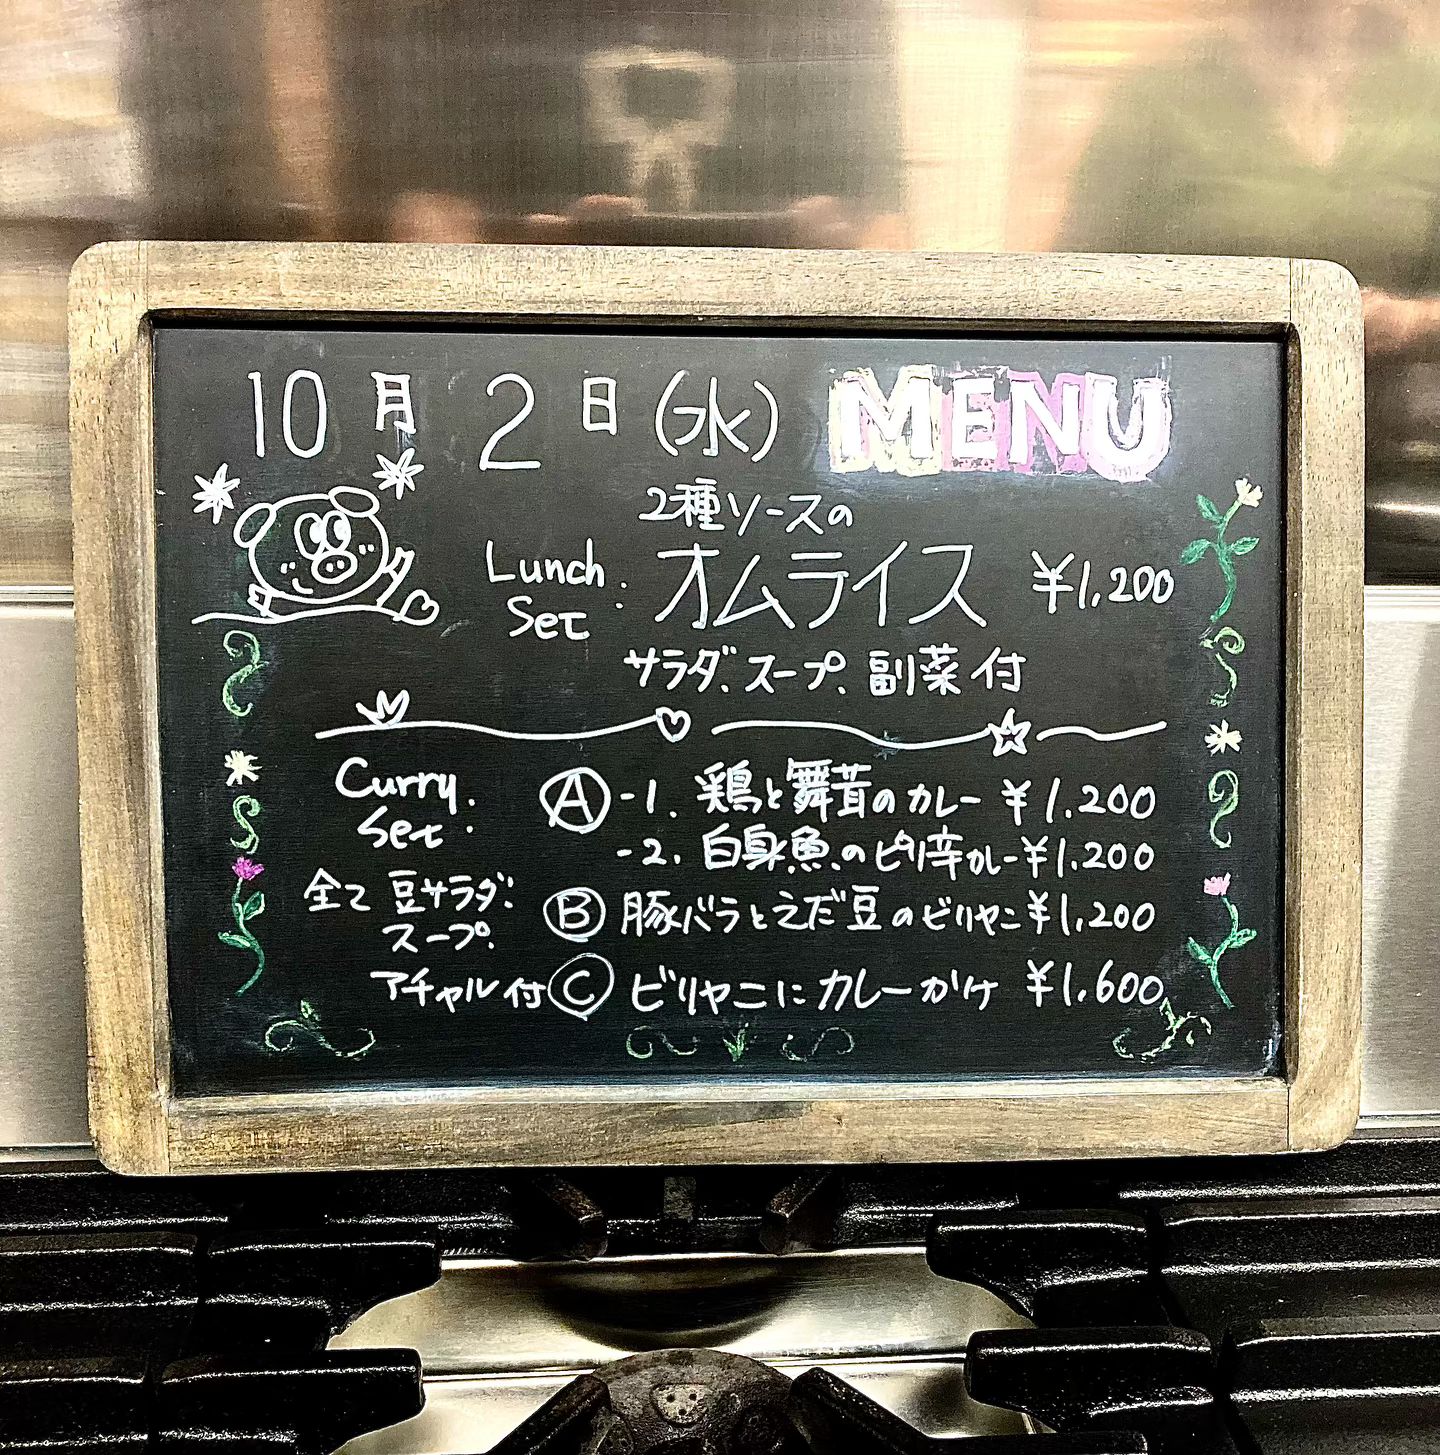 10月 2日 (水) MENU
2種ソースの
Lunch Set: オムライス ¥1,200
サラダ、スープ、副菜 付
Curry Set: Ⓐ-1. 鶏と舞茸のカレー ¥1,200
-2. 白身魚のピリ辛カレー ¥1,200
全て 豆サラダ、 Ⓑ 豚バラとえだ豆のビリヤニ ¥1,200
スープ、
アチャル付 Ⓒ ビリヤニにカレーがけ ¥1,600